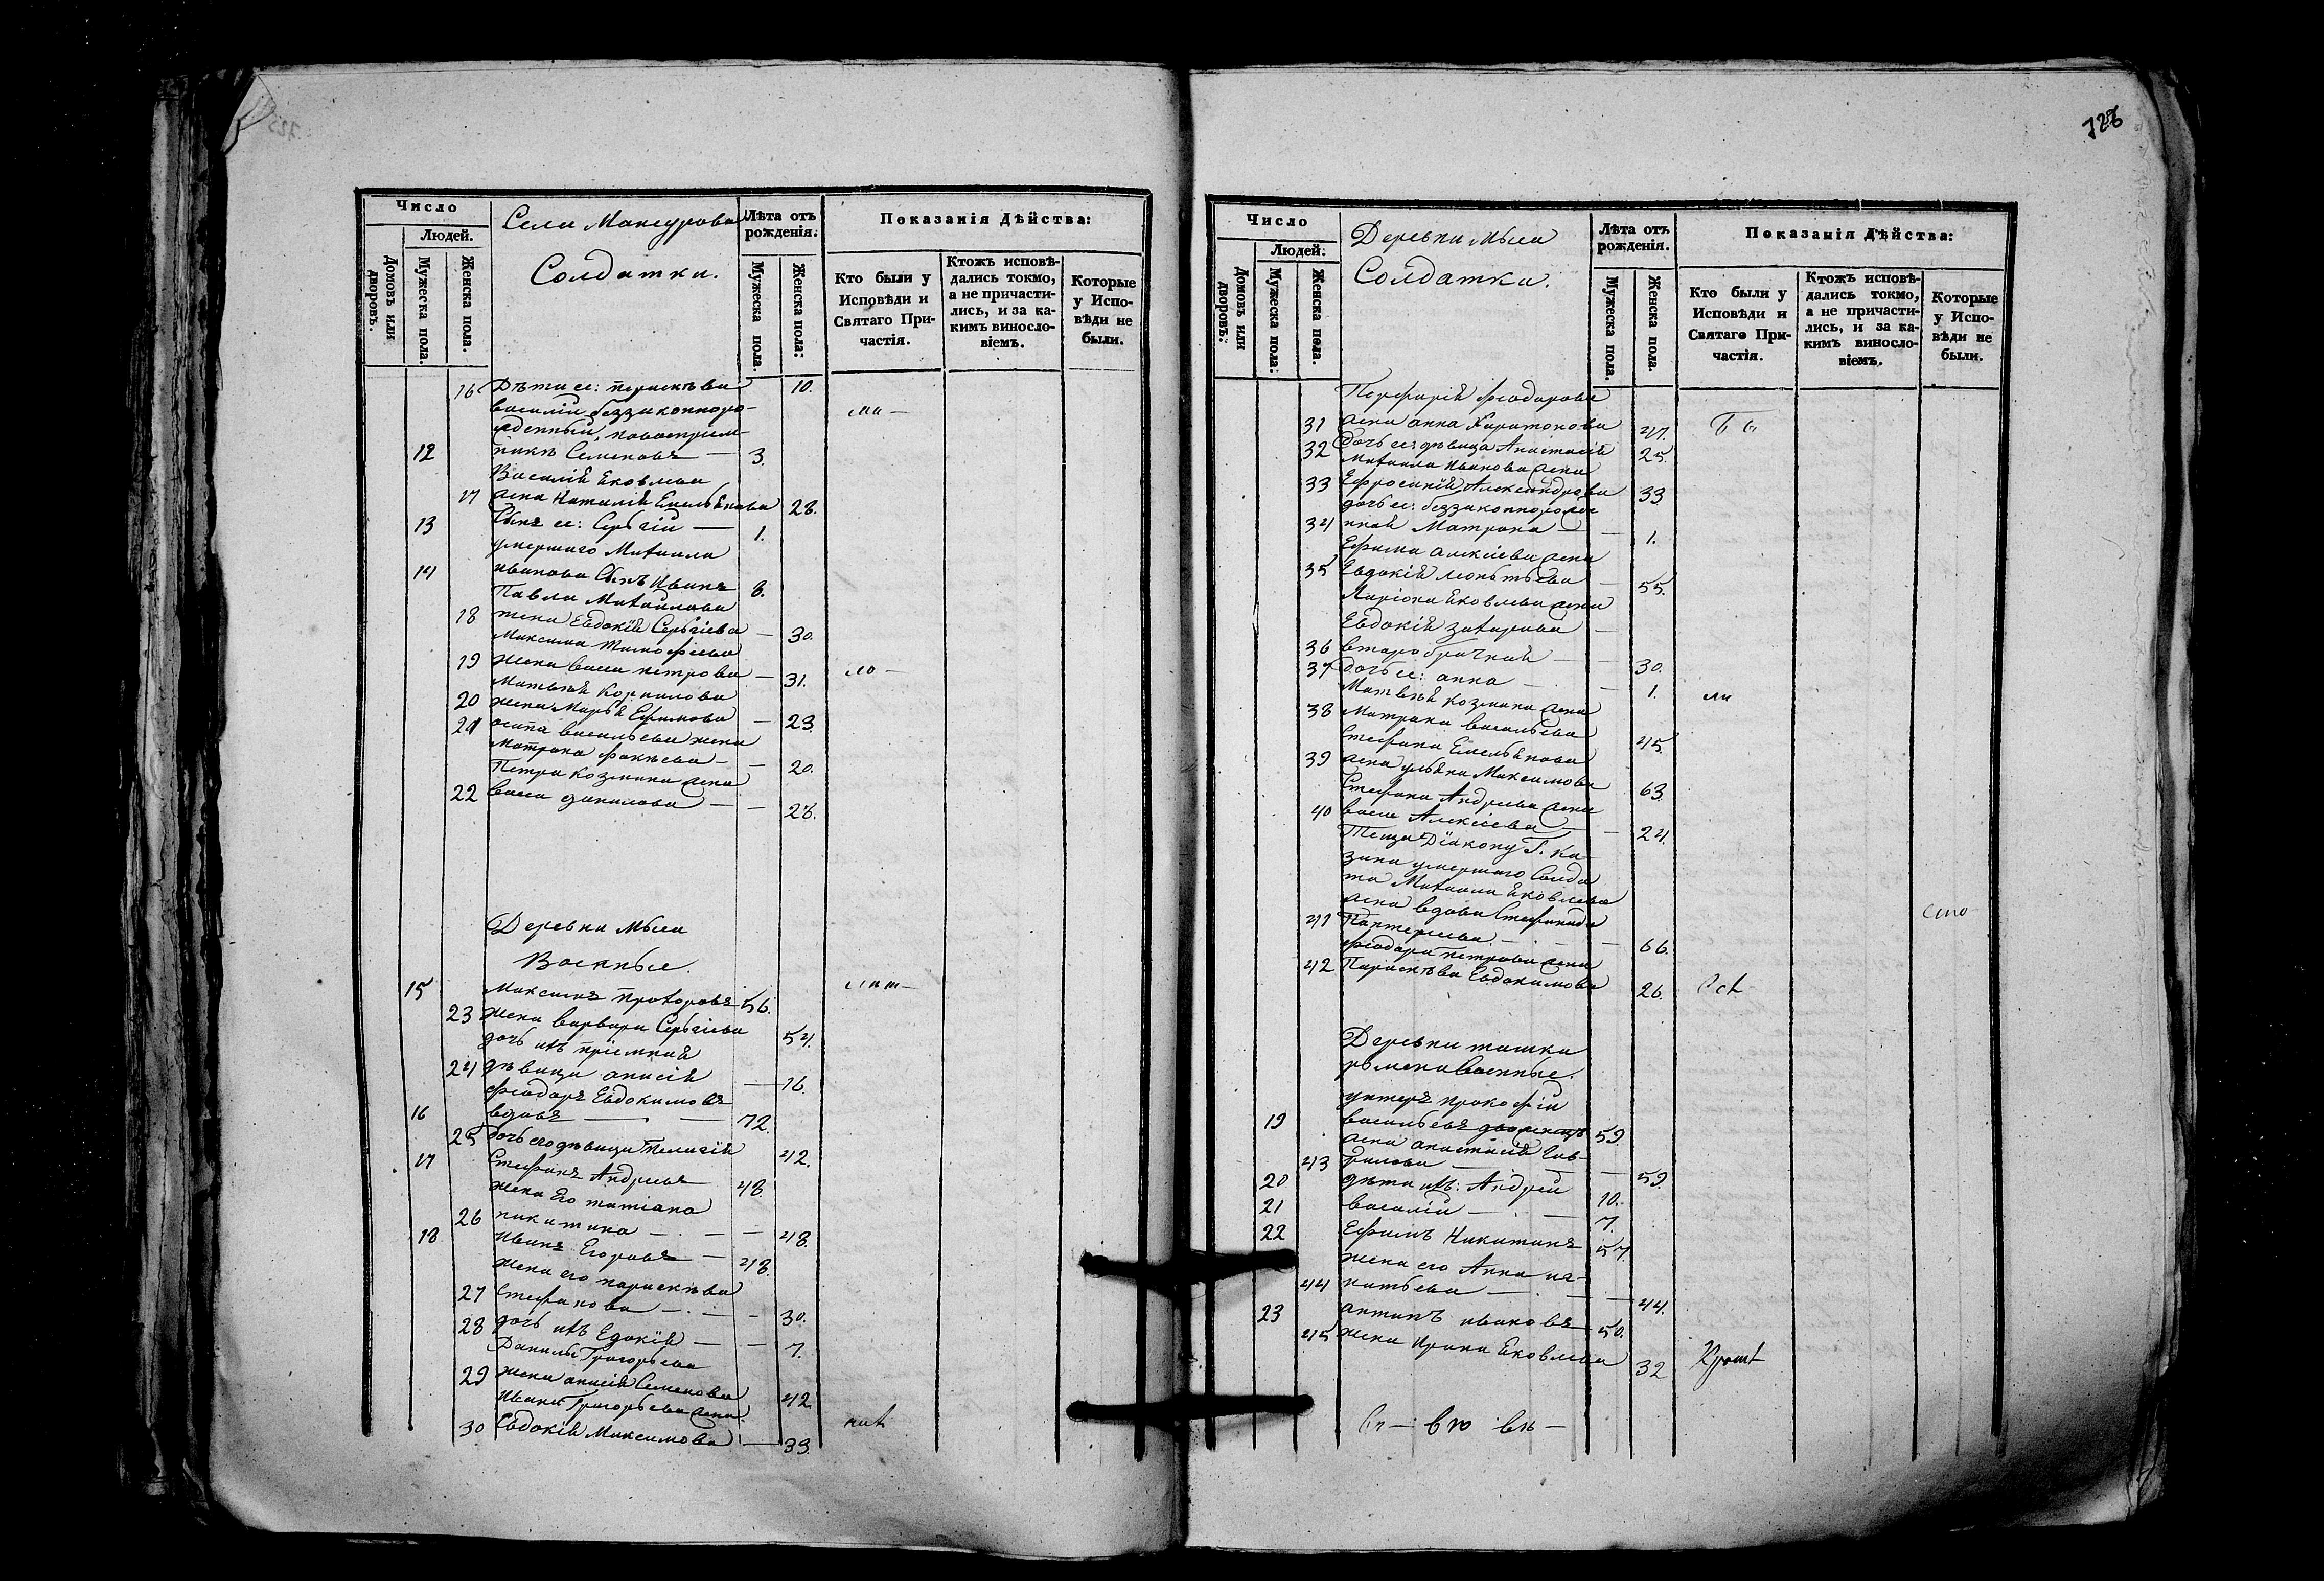 Число
Людей.
Домовъ или дворовъ.
Мужеска пола.
Женска пола.
Села Мансурова
Солдатки.
Лѣта отъ рожденія:
Мужеска пола.
Женска пола:
Показанія Дѣйства:
Кто были у Исповѣди и Святаго Причастія.
Ктожъ исповѣдались токмо, а не причастились, и за какимъ винословіемъ.
Которые у Исповѣди не были.
16 Дѣти ее: Параскѣва 10.
василій беззаконноро-
жденный,
12 Семеновъ — 3.
Василія Яковлева
17 жена Наталія Емельянова 28.
13 Сынъ ее: Сергій — 1.
умершаго Михаила
14 иванова Сынъ Иванъ 8.
Павла Михайлова
18 жена Евдокія Сергіева — 30.
Максима Тимофеева
19 жена васса петрова — 31.
Матвѣя Корнилова
20 жена Марья Ефимова — 23.
21 осипа васильева жена
Матрона фокѣева — — 20.
Петра козмина жена
22 васса данилова — — 28.
Деревни Мыса
Военные.
15 Максимъ прохоровъ 56.
23 жена варвара Сергіева 54.
дочь ихъ пріемная
24 дѣвица анисія — 16.
феодоръ Евдокимовъ
16 вдовъ — — 72.
25 дочь его дѣвица Пелагія 42.
17 Стефанъ Андреевъ 48.
жена Его татіана
26 никитина — — — 48.
18 иванъ Егоровъ — 48.
жена его параскѣва
27 Стефанова — — — 30.
28 дочь ихъ Едокія — — 7.
Данилы Григорьева
29 жена анисія Семенова 42.
Ивана Григорьева жена
30 Евдокія Максимова — 33.
Число
Людей:
Домовъ или дворовъ:
Мужеска пола:
Женска пола.
Деревни Мыса
Солдатки.
Лѣта отъ рожденія.
Мужеска пола.
Женска пола.
Показанія Дѣйства:
Кто были у Исповѣди и Святаго Причастія.
Ктожъ исповѣдались токмо, а не причастились, и за какимъ винословіемъ.
Которые у Исповѣди не были.
Порфирія феодорова
31 жена анна Харитонова 47.
32 Дочь ее: дѣвица Анастасія 25.
Михаила Иванова жена
33 Ефросинія Александрова 33.
дочь ее: беззаконнорожде
34 нная Матрона — — 1.
Ефима алексіева жена
35 Евдокія леонтьева — 55.
Ларіона Яковлева жена
Евдокія захарова —
36 второбрачная — — 30.
37 дочь ее: анна — — 1.
Матвѣя козмина жена
38 Матрона васильева 45.
Стефана Емельянова
39 жена ульяна Максимова 63.
Стефана Андреева жена
40 васса Алексіева — — 24.
Теща Діакону Г. Ка-
зина умершаго Солда
та Михаила Яковлева
жена вдова Стефанида
41 — — 66.
феодора петрова жена
42 Параскѣва Евдокимова 26.
Деревни ташки
рменя Военные.
унтеръ прокофій
19 васильевъ 59.
жена анастасія Гав-
43 рилова — — — 59.
20 дѣти ихъ: Андрей 10.
21 василій — — 7.
22 Ефимъ Никитинъ 57.
жена его Анна иг-
44 натьева — — — 44.
23 антипъ ивановъ 50.
45 жена Ирина Яковлева 32